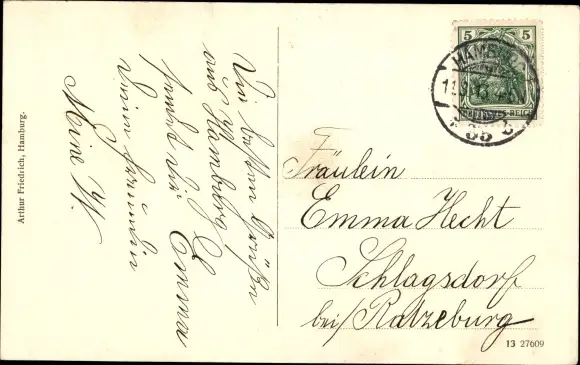 Die besten Grüßen
aus Hamburg,
sendet dir l. Emma
Deine Freundin
Mine W.
Arthur Friedrich, Hamburg.
5 5
HAMBURG
DEUTSCHES REICH
Fräulein
Emma Hecht
Schlagsdorf
bei/ Ratzeburg
13 27609